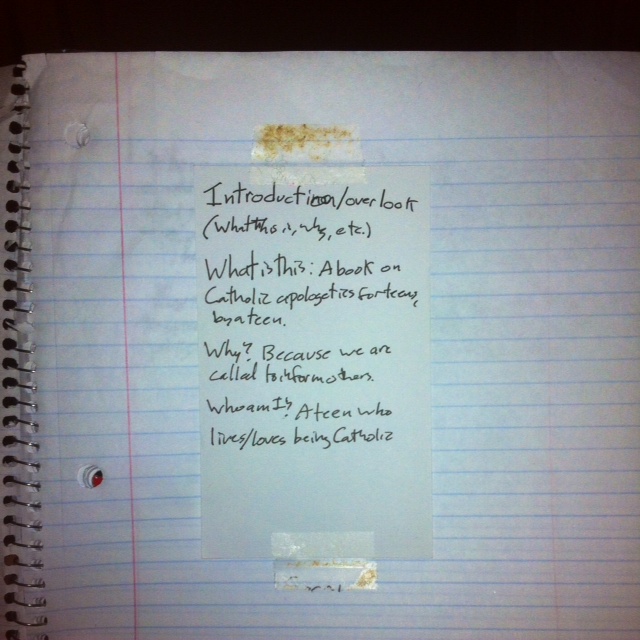 Introduction/overlook
(What this is, why, etc.)
What is this: A book on
Catholic apologetics for teens,
by a teen.
Why? Because we are
called to inform others.
Who am I? A teen who
lives/loves being Catholic